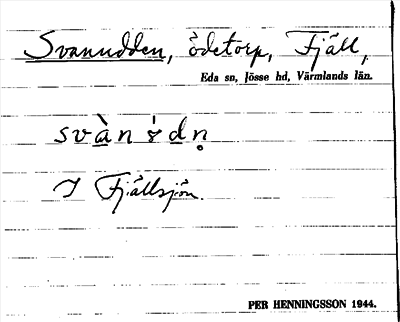 Svanudden, ödetorp, Fjäll,
Eda sn, Jösse hd, Värmlands län.
svànòdn̥
I Fjällsjön.
PER HENNINGSSON 1944.